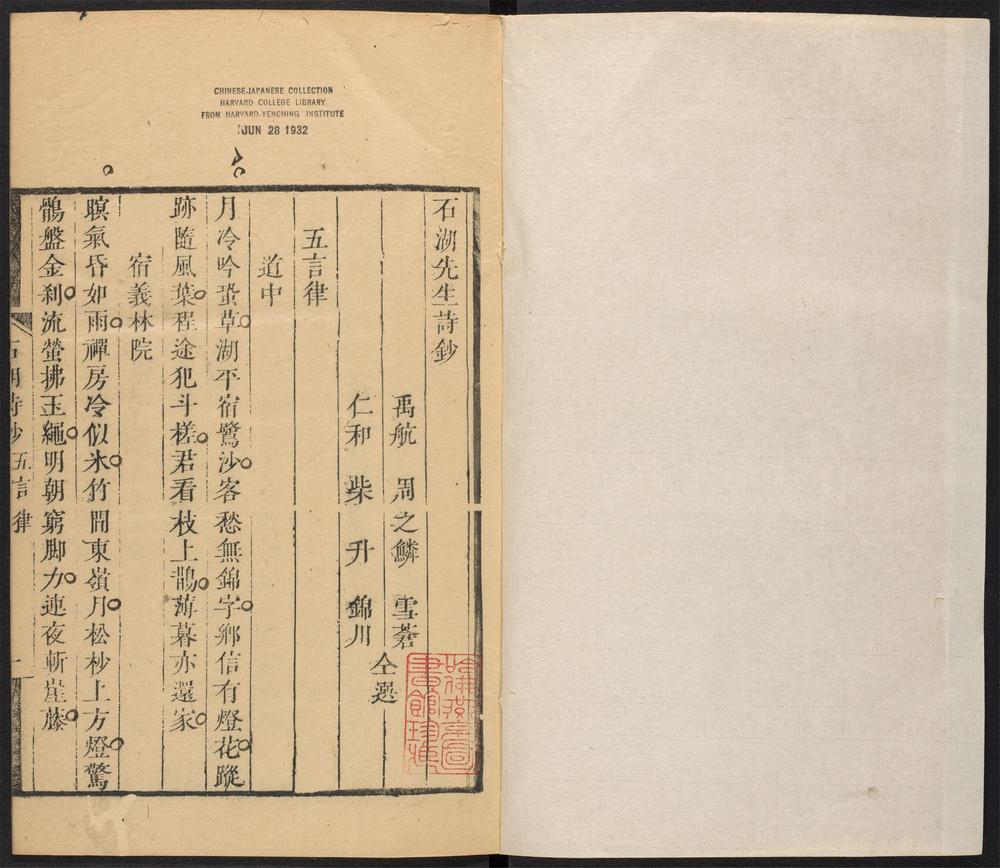 CHINESE-JAPANESE COLLECTION
HARVARD COLLEGE LIBRARY
FROM HARVARD-YENCHING INSTITUTE
JUN 28 1932
石湖先生詩鈔
禹航 周之鱗 雪蒼
仁和 柴 升 錦川
仝選
五言律
道中
月冷吟蛩草湖平宿鷺沙客愁無錦字鄉信有燈花蹤
跡隨風葉程途犯斗槎君看枝上鵲薄暮亦還家
宿義林院
暝氣昏如雨禪房冷似氷竹間東嶺月松杪上方燈驚
鶻盤金刹流螢拂玉繩明朝窮脚力連夜斬崖藤
石湖詩鈔 五言律 一
哈佛燕京圖書館珍藏